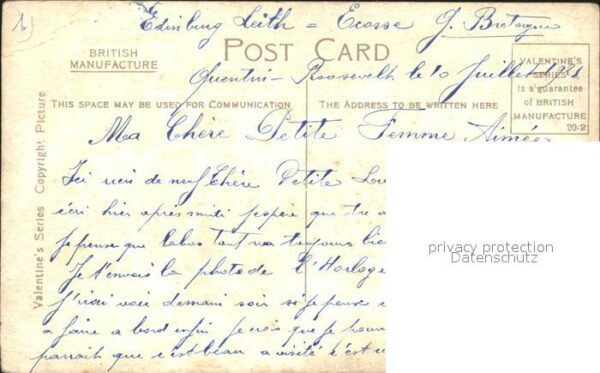 1)
Edinburg Leith = Ecosse G. Bretagne
BRITISH
MANUFACTURE
POST CARD
VALENTINE'S
SERIES
is a guarantee
of BRITISH
MANUFACTURE
20-2
Quentin-Roosevelt le 10 Juillet
THIS SPACE MAY BE USED FOR COMMUNICATION
THE ADDRESS TO BE WRITTEN HERE
Valentine's Series Copyright Picture
Ma Chère Petite Femme Aimée
Ici rien de neuf Chère Petite
écri hier après midi j'espère que tu
je pense que labas tout va toujours
Je t'envois la photo de l'Horloge
j'irai voir demain soir si je peux
a faire a bord enfin je crois que je
parrait que c'est beau a visité c'est
privacy protection
Datenschutz